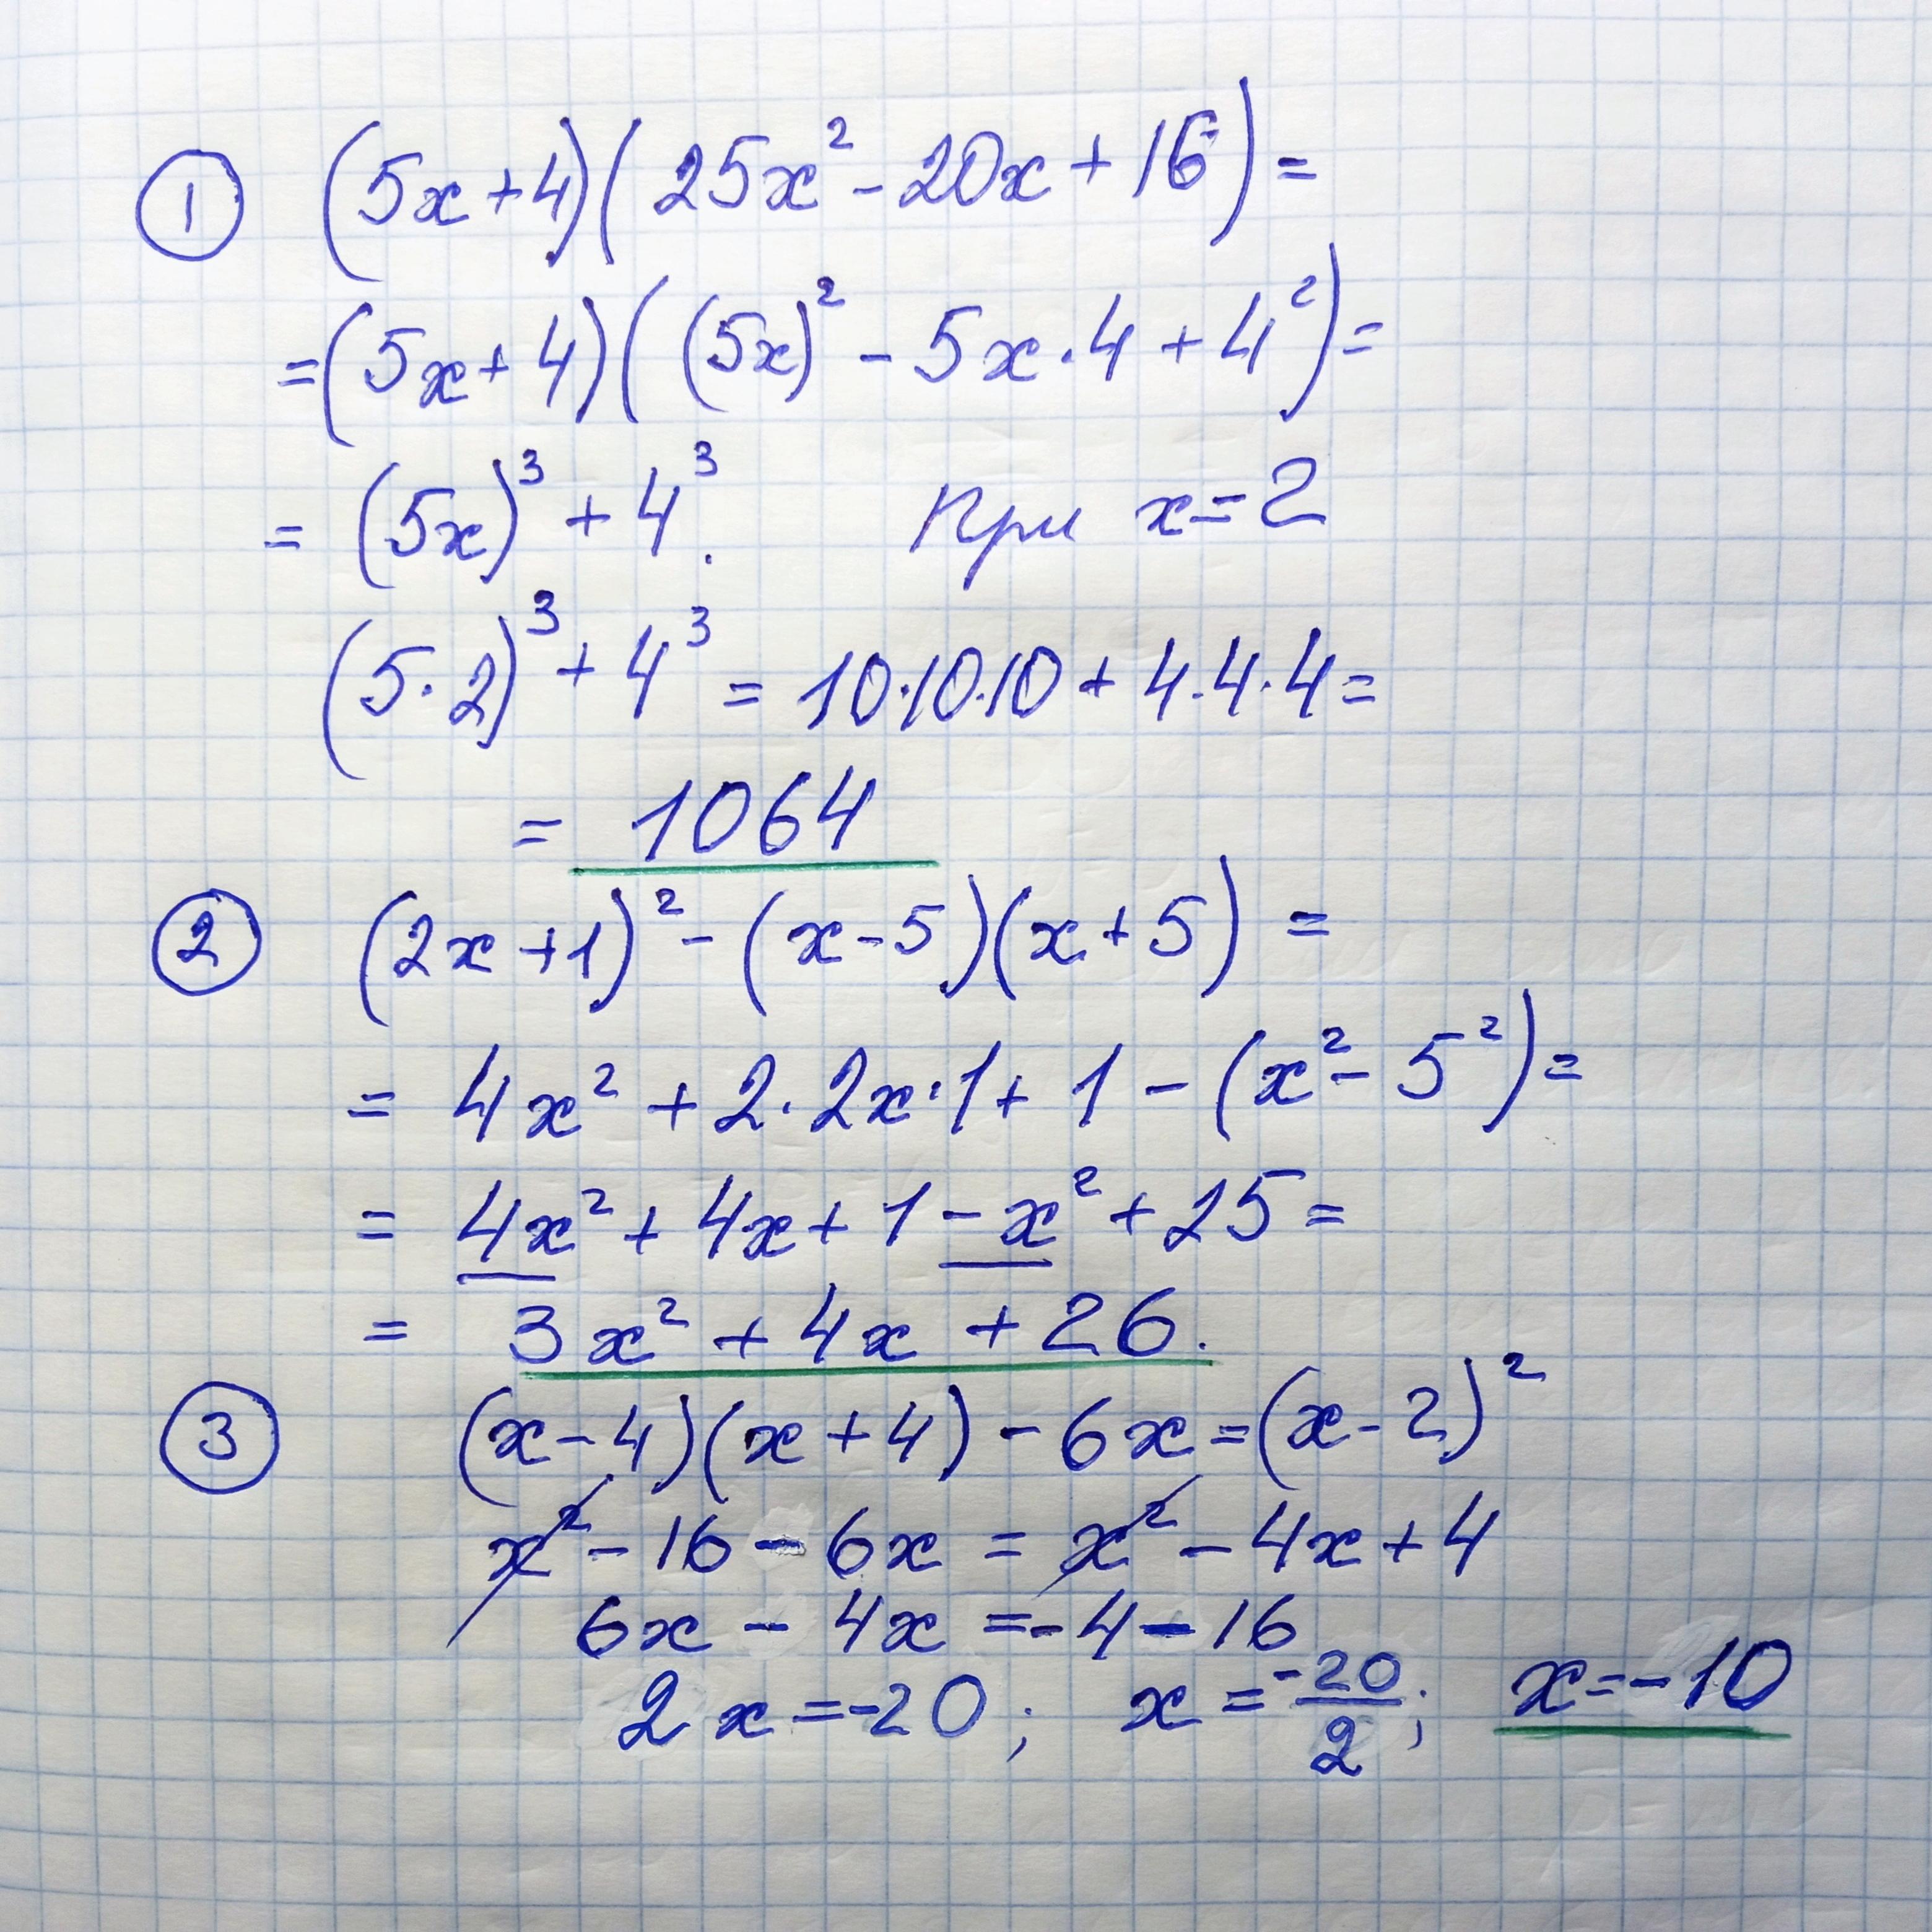 ① (5x+4)(25x²-20x+16)=
=(5x+4)((5x)²-5x·4+4²)=
=(5x)³+4³. При x=2
(5·2)³+4³=10·10·10+4·4·4=
=1064
② (2x+1)²-(x-5)(x+5)=
=4x²+2·2x·1+1-(x²-5²)=
=4x²+4x+1-x²+25=
=3x²+4x+26.
③ (x-4)(x+4)-6x=(x-2)²
x²-16-6x=x²-4x+4
6x-4x=-4-16
2x=-20; x=-20/2; x=-10